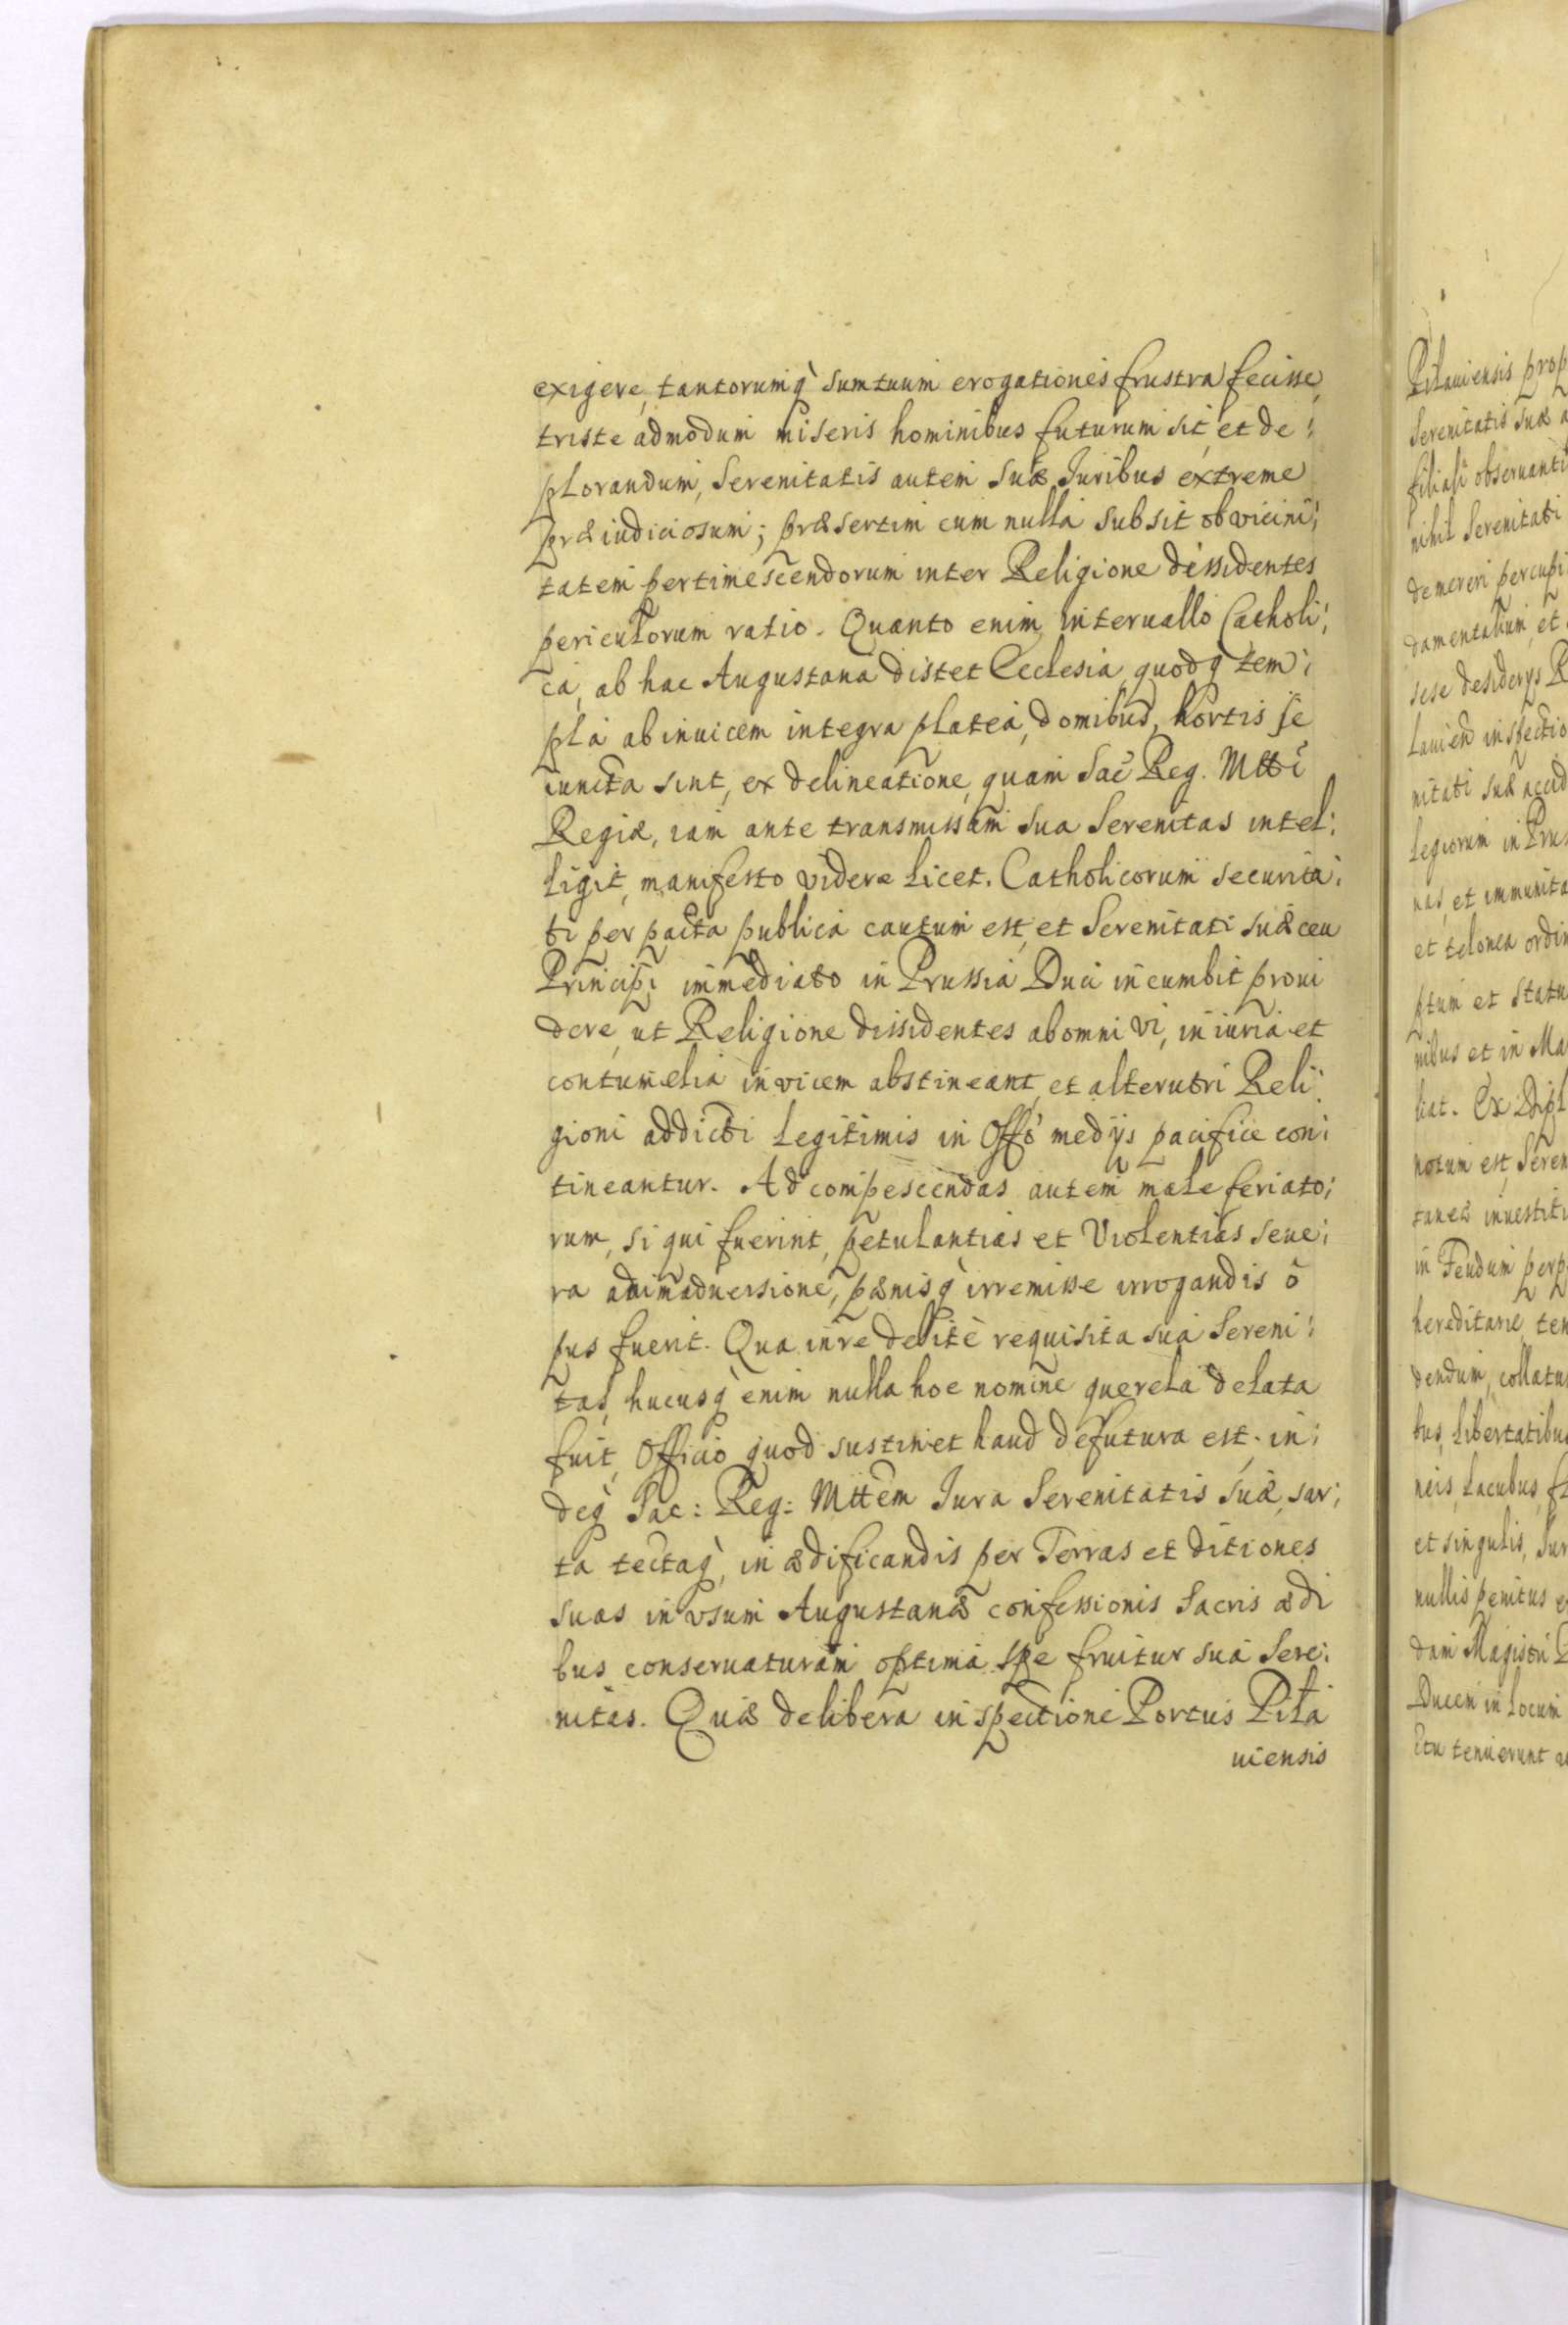 exigere, tantorumq̀ sumtuum erogationes frustra fecisse,
triste admodum miseris hominibus futurum sit, et de:
plorandum, Serenitatis autem suæ Juribus extreme
præiudiciosum; præsertim cum nulla subsit ob vicini:
tatem pertimescendorum inter Religione dissidentes
periculorum ratio. Quanto enim interuallo Catholi:
ca, ab hac Augustana distet Ecclesia, quodq̀ tem:
pla ab inuicem integra platea, domibus, hortis se
iuncta sint, ex delineatione, quam Sac̄ Reg. Mtti
Regiæ, iam ante transmissam sua Serenitas intel:
ligit, manifesto videre licet. Catholicorum securita:
ti per pacta publica cautum est, et Serenitati suæ ceu
Principi immediato in Prussia Duci incumbit proui
dere, ut Religione dissidentes ab omni vi, iniuria et
contumelia invicem abstineant, et alterutri Reli:
gioni addicti legitimis in Offo medijs pacifice con:
tineantur. Ad compescendas autem male feriato:
rum, si qui fuerint, petulantias et Violentias seue:
ra animaduersione, pænisq̀ irremisse irrogandis o
pus fuerit. Qua in re debite requisita sua Sereni:
tas, hucusq̀ enim nulla hoc nomine querela delata
fuit, Officio quod sustinet haud defutura est. in:
deq̀ Sac: Reg: Mttem Jura Serenitatis suæ, sar:
ta tectaq̀, in ædificandis per Terras et ditiones
suas in vsum Augustanæ confessionis Sacris ædi
bus conseruaturam optima spe fruitur sua Sere:
nitas. Quæ de libera inspectione Portus Pila
uiensis
Pilauiensis prop
Serenitatis suæ
filiali obseruanti
nihil Serenitati
demereri percupi
damentalium, et
sese desiderijs R
lauien inspectio
nitati suæ accid
legiorum in Prus
nas, et immunita
et telonea ordin
ptum et statu
nibus et in Ma
liat. Ex Dipl
notum est, Seren
taneâ inuestit
in Feudum perp
hereditarie ten
dendum, collatu
bus, libertatibu
neis, lacubus, f
et singulis, Jur
nullis penitus e
dam Magistri
Ducem in locum
tenuerunt